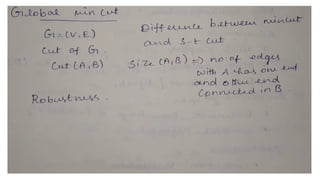 Global min cut
G=(V,E)
Cut of G
Cut (A,B)
Robustness.
Difference between mincut
and s-t cut
Size (A,B) => no. of edges
with A has one end
and other end
connected in B